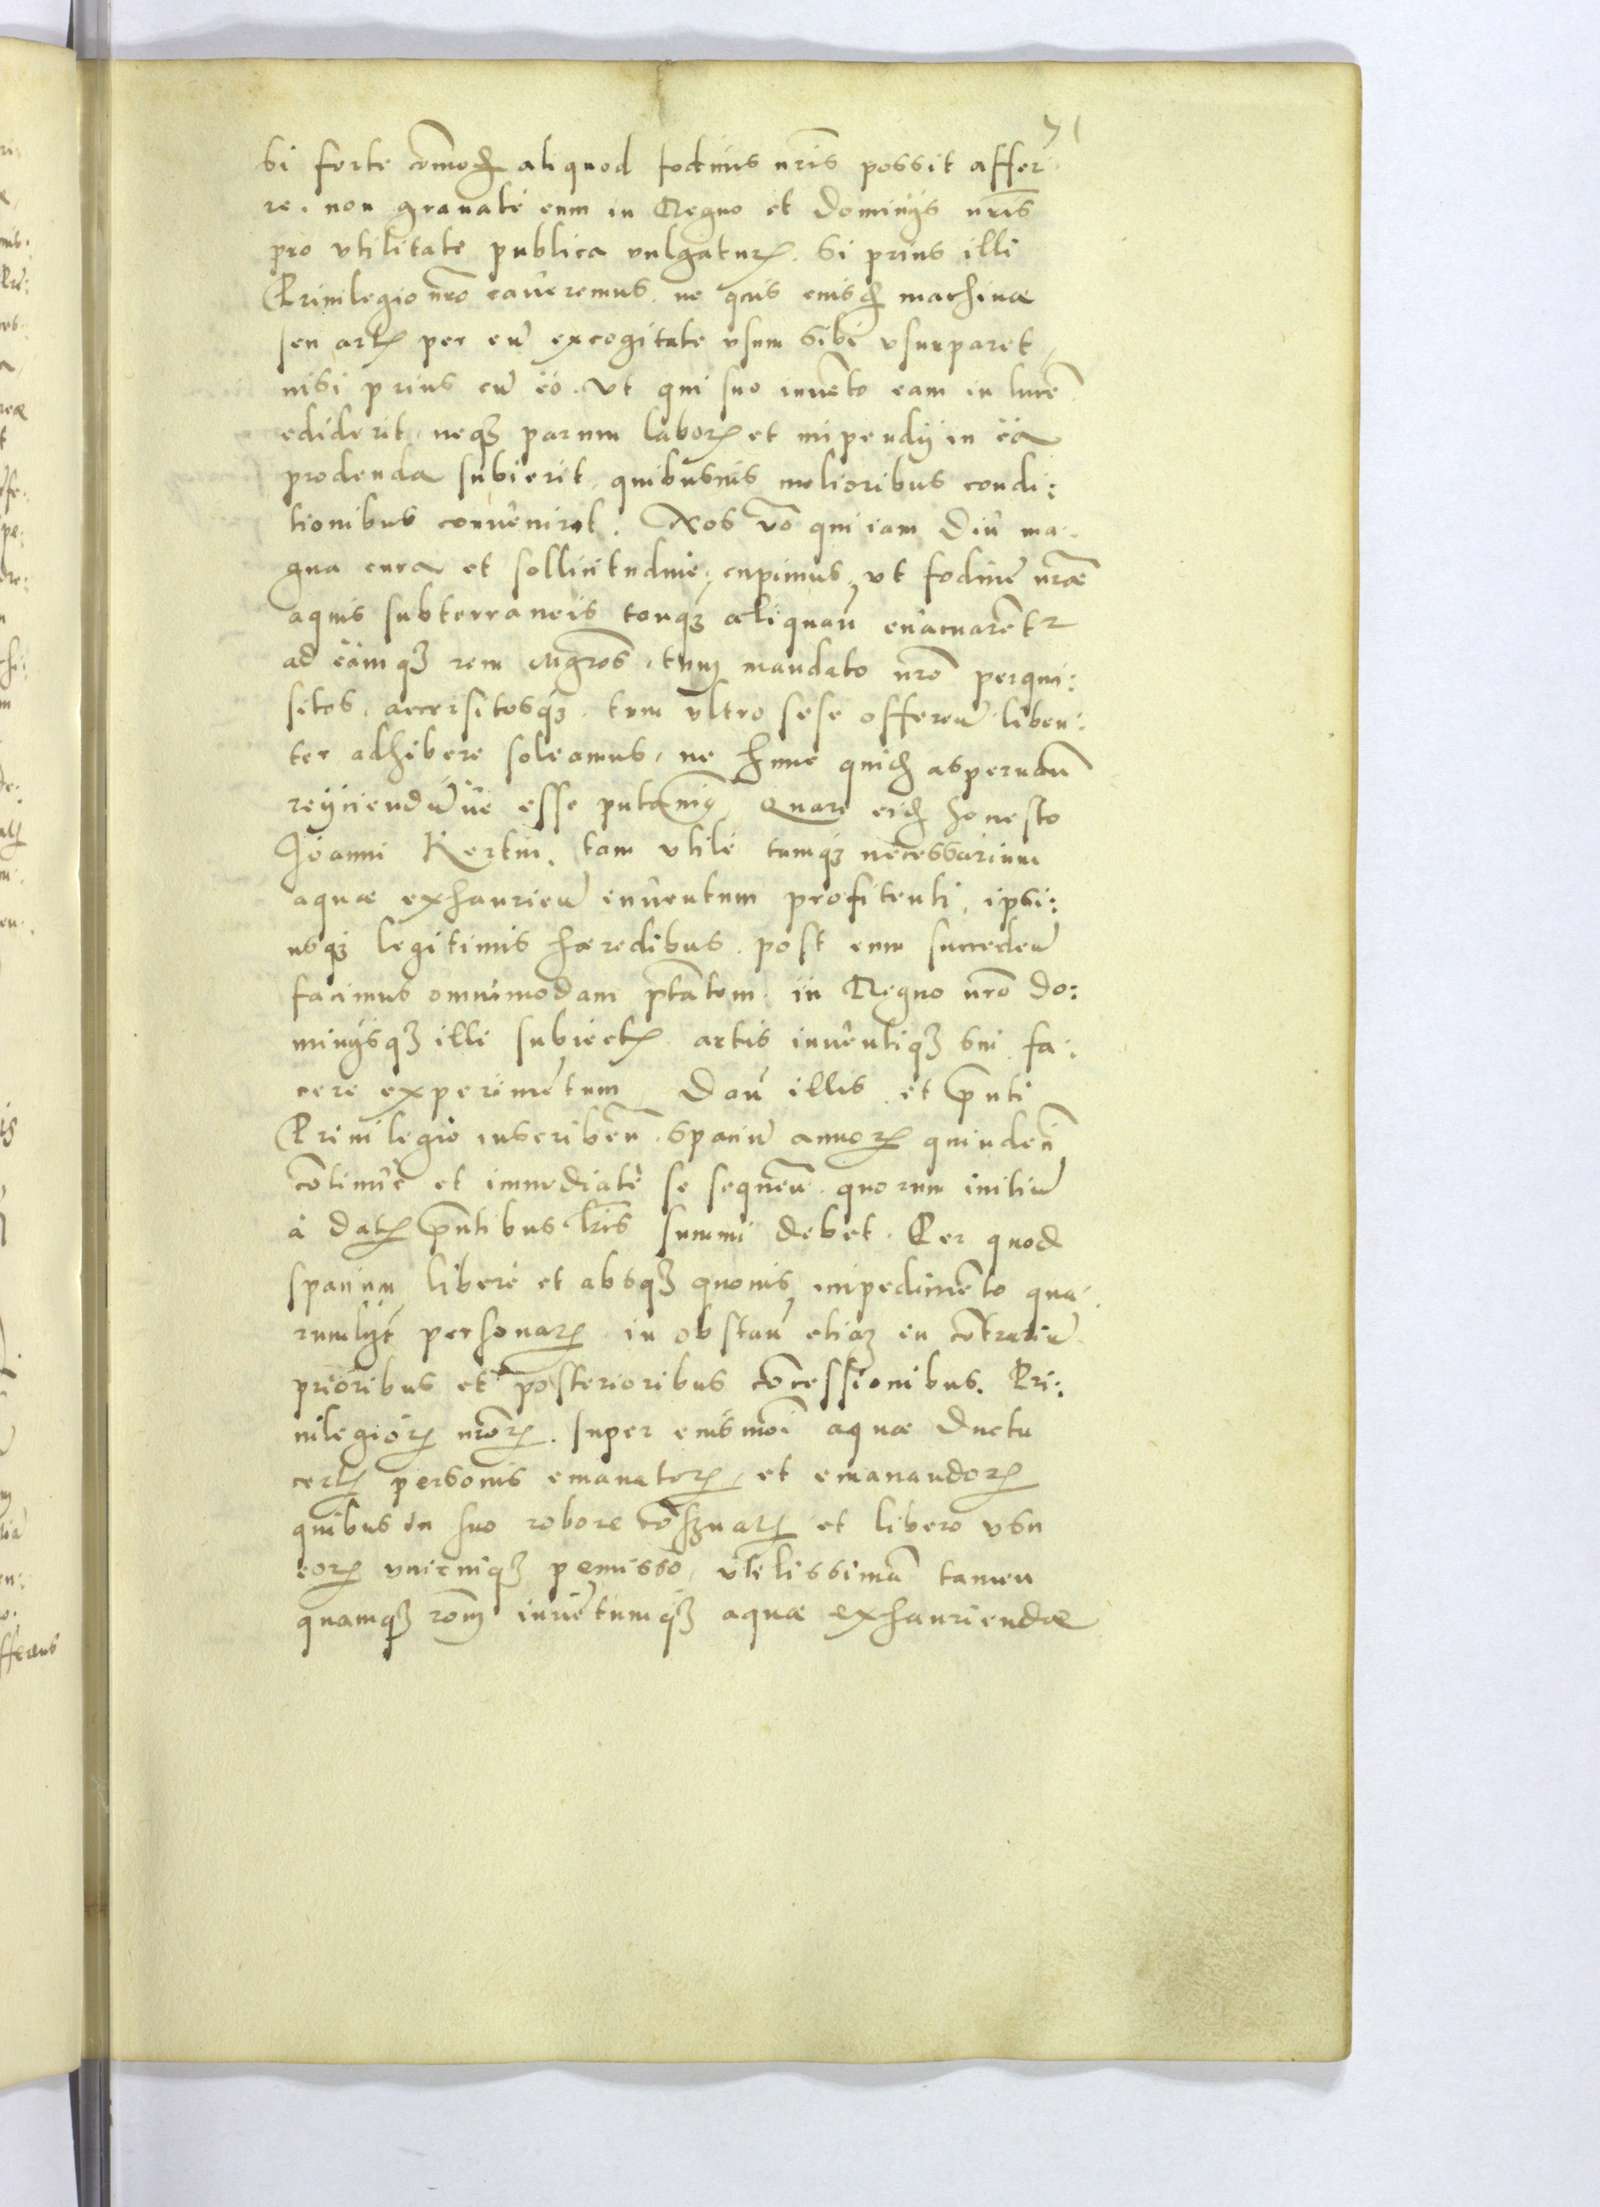 71
si forte comod aliquod fodinis nris possit affer
re. non gravate eum in Regno et dominijs nris
pro vtilitate publica vulgaturum. Si prius illi
Privilegio nro caveremus. ne quis eiusd machinae
seu artis per eum excogitate vsum sibi vsurparet
nisi prius cum eo. vt qui suo invento eam in lucem
ediderit, neque parum laboris et impendij in ea
prodenda subierit, quibusvis melioribus condi:
tionibus convenirет. Nos vero qui iam diu ma
gna cura et sollicitudine, cupimus, vt fodinae nrae
aquis subterraneis tanque aliquando evacuarentur
ad eamque rem Mgros, tum mandato nro perqui:
sitos, accersitosque, tum vltro sese offeren liben:
ter adhibere soleamus, ne hunc quid aspernan
reijciendumve esse putavimus. Quare eid honesto
Joanni Kertin, tam vtile tamque necessarium
aquae exhaurien inventum profitenti, ipsi:
usque legitimis haeredibus post eum succeden
facimus omnimodam ptatem in Regno nro do:
minijsque illi subiectis artis inventique sui fa:
cere experimentum, Dan illis et pnti
Privilegio inscriben spacium annorum quindecim
continue et immediate se sequen, quorum initium
à datis pntibus lris summi debet. Per quod
spacium libere et absque quovis impedimento qua
rumlibet personarum, in obstan etiam in contrarium
prioribus et posterioribus concessionibus, Pri:
vilegiorum nrorum, super eiusmoi aquae ductu
certis personis emanatorum, et emanandorum
quibus in suo robore conservatis et libero vsu
eorum vnicuique permisso, vtilissimam tamen
quamque rem inventumque aquae exhauriendae